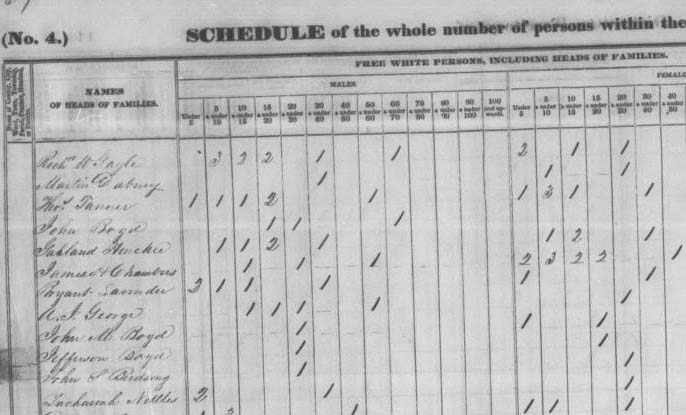 (No. 4.) SCHEDULE of the whole number of persons within the
FREE WHITE PERSONS, INCLUDING HEADS OF FAMILIES.
NAMES
OF HEADS OF FAMILIES.
MALES
FEMAL
Under 5
5 & under 10
10 & under 15
15 & under 20
20 & under 30
30 & under 40
40 & under 50
50 & under 60
60 & under 70
70 & under 80
80 & under 90
90 & under 100
100 and upwards.
Under 5
5 & under 10
10 & under 15
15 & under 20
20 & under 30
30 & under 40
40 & under 50
Richd W Gayle 3 3 2 1 1 2 1 1
Martin Dabney 1 1 1
Thos. Tanner 1 1 1 2 1 1 3 1 1
John Boyd 1 1 1
Garland 1 1 2 1 1 2 1
James Chambers 1 1 1 2 3 2 2 1
Bryant Lavender 2 1 1 1 1 1
A. J. George 1 1 1 1 1
John M. Boyd 1 1 1
Jefferson Boyd 1 1
John S Birdsong 1 1
Zachariah Nettles 2 1 1